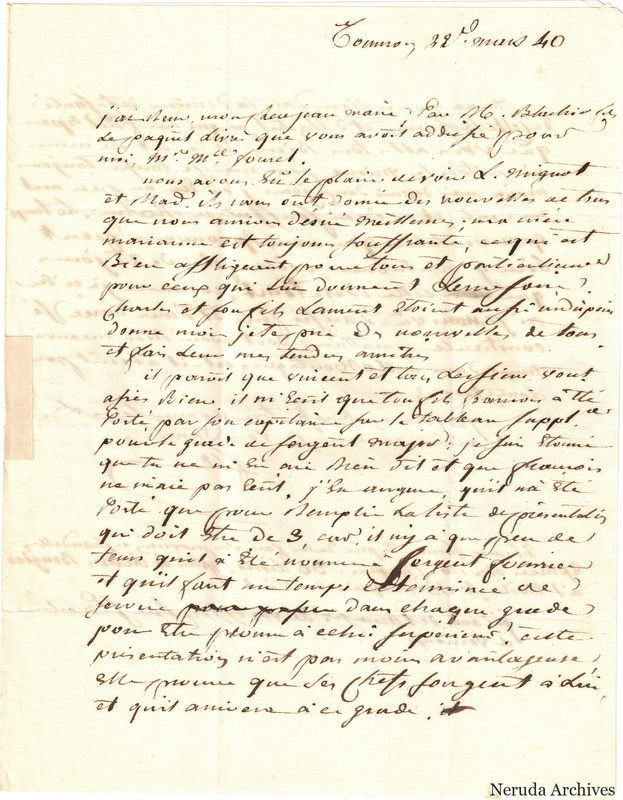 22 mars 40
j'ai reçu, mon cher jean marie, Par M.
Le paquet Livres que vous avoit addressé pour
moi, Mr.
nous avons Eu le plaisir de voir L. mignot
et Mad. ils nous ont donné des nouvelles de tous
que nous aurions désiré meilleures; ma nièce
marianne est toujours souffrante, ce qui est
Bien affligeant pour tous et particulierement
pour ceux qui Lui donnent Leurs soins.
Charles et son fils Laurent Etoient aussi indisposés
donne moi je te prie des nouvelles de tous
et fais Leur mes tendres amitiés
il paroit que vincent et tous Les siens vont
assés Bien. il m'Ecrit que ton fils francois a Eté
Porté par son capitaine sur le tableau
pour le grade de sergent major; je suis Etonné
que tu ne m'En aie Rien dit et que francois
ne m'aie pas Ecrit. j'En augure, qu'il n'a Eté
Porté que pour Remplir La liste de présentation
qui doit Etre de 3. car il n'y a que peu de
tems qu'il a Eté nommé Sergent fourrier
et qu'il faut un temps déterminé de
service dans chaque grade
pour Etre promu à celui supérieur. cette
présentation n'est pas moins avantageuse
Elle prouve que Ses Chefs songent à Lui,
et qu'il arrivera à ce grade.
Neruda Archives